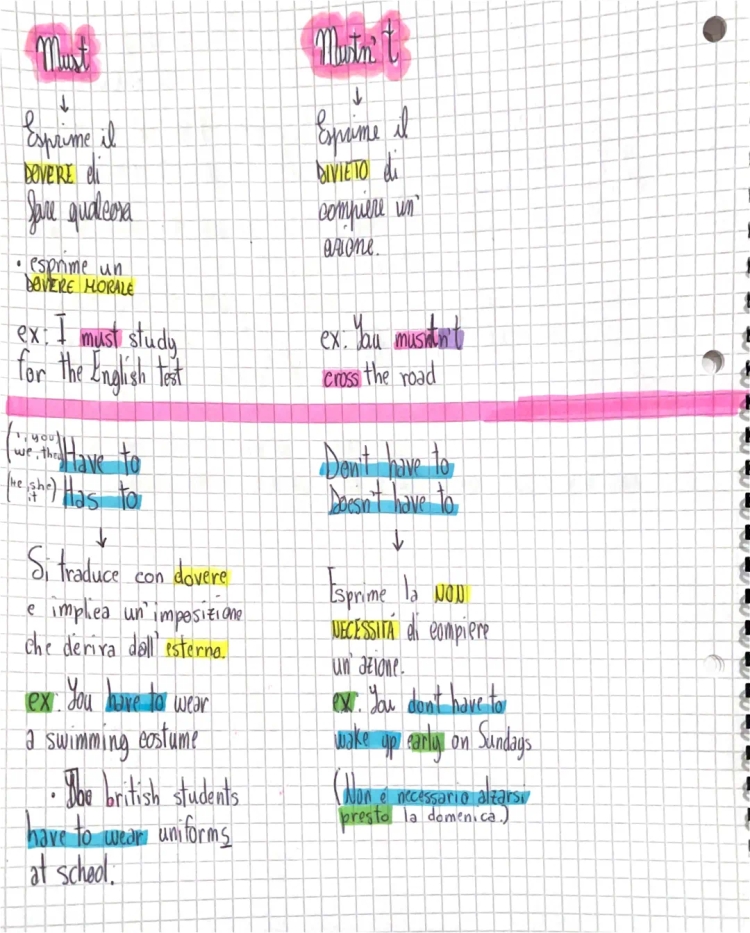 Must
↓
Esprime il
DOVERE di
fare qualcosa
• esprime un
DOVERE MORALE
ex: I must study
for the English test
Mustn't
↓
Esprime il
DIVIETO di
compiere un'
azione.
ex: You mustn't
cross the road
(I, you, we, they) Have to
(He, she, it) Has to
↓
Si traduce con dovere
e implica un'imposizione
che deriva dall'esterno.
ex: You have to wear
a swimming costume
• The british students
have to wear uniforms
at school.
Don't have to
Doesn't have to
↓
Esprime la NON
NECESSITÀ di compiere
un'azione.
ex: You don't have to
wake up early on Sundays
(Non è necessario alzarsi
presto la domenica.)